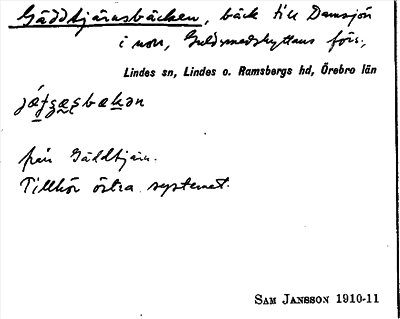 Gäddtjärnsbäcken, bäck till Damsjön
i norr, Guldsmedshyttans förs.,
Lindes sn, Lindes o. Ramsbergs hd, Örebro län
från Gäddtjärn.
Tillhör östra systemet.
SAM JANSSON 1910-11